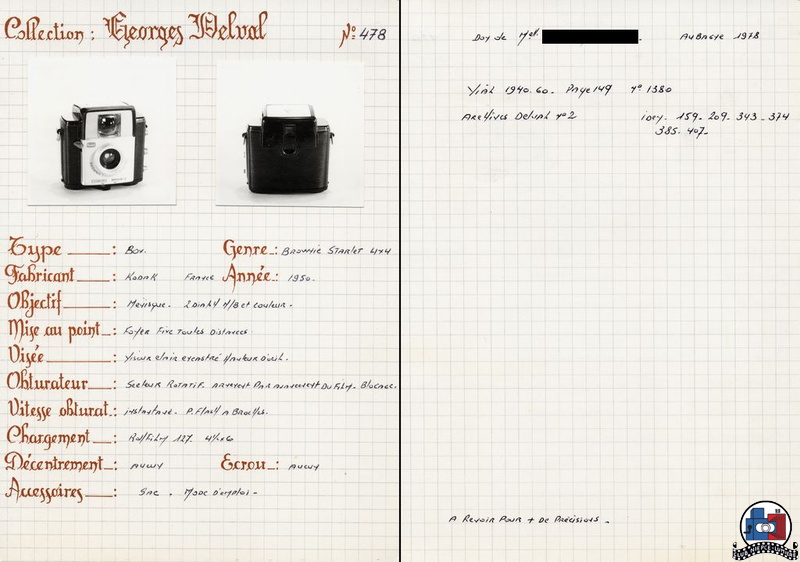 Collection : Georges Delval Nº 478
Type : Box. Genre : Brownie Starlet 4x4
Fabricant : Kodak France Année : 1950.
Objectif : Ménisque. 2 Diaph N/B et couleur.
Mise au point : Foyer Fixe Toutes Distances.
Visée : Viseur clair encastré Hauteur d'œil.
Obturateur : Secteur Rotatif. armement Par avancement Du Film. Blocage.
Vitesse obturat. : instantané. P. Flash à Broches.
Chargement : Rollfilm 127.
Décentrement : Aucun Ecrou : Aucun
Accessoires : Sac. Mode d'emploi -
Don de Mell. Aubagne 1978
Vial 1940.60. Page 149 nº 1380
Archives Delval nº 2 159. 209. 343 - 374
385. 407-
A Revoir Pour + De Précisions.